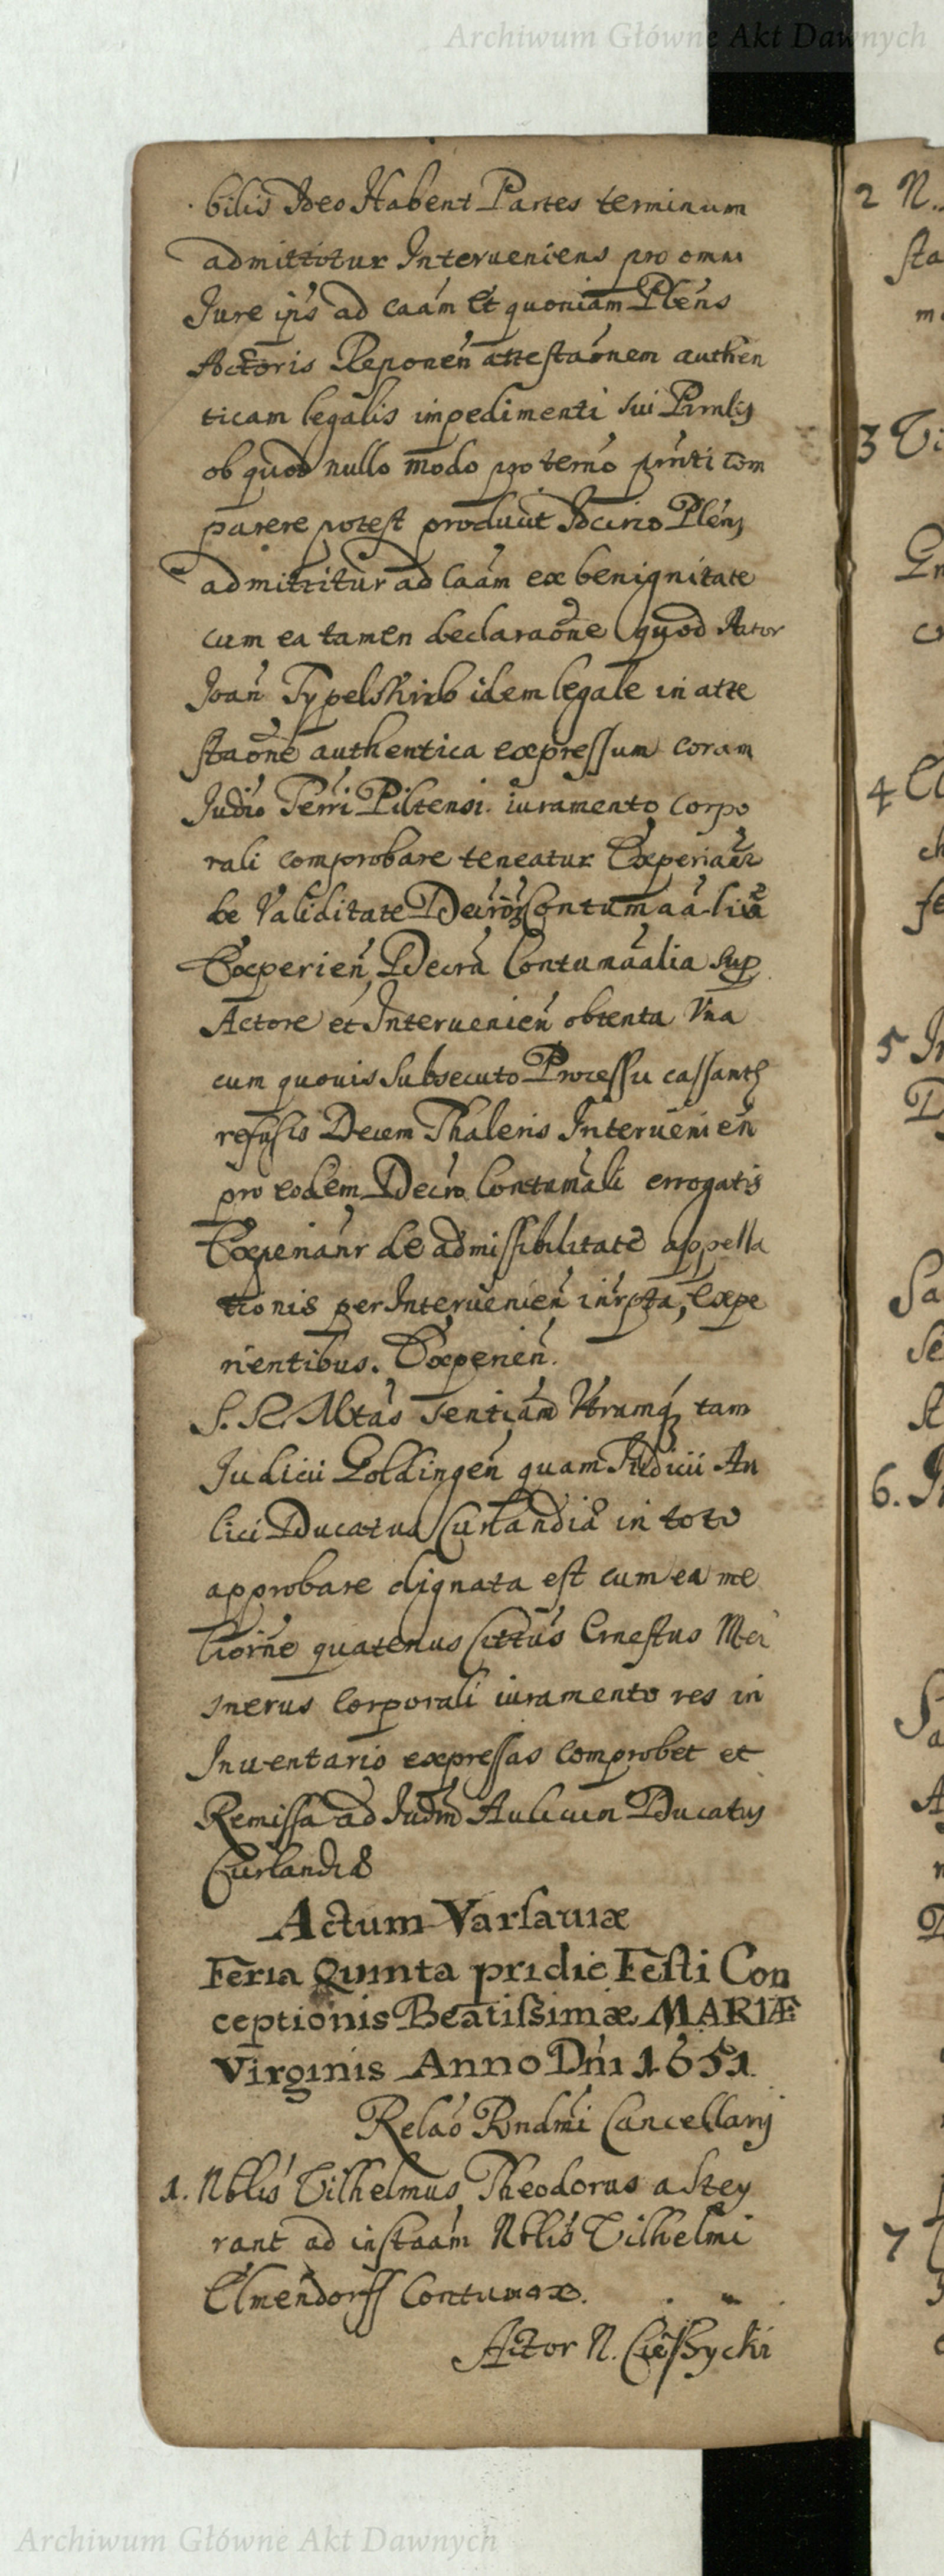 Archiwum Główne Akt Dawnych
bilis Ideo Habent Partes terminum
admittitur Interveniens pro omni
Jure ips ad caam Et quoniam Plens
Actoris Reponen attestaonem authen
ticam legalis impedimenti sui Prnlis
ob quod nullo modo pro terno prnti com
parere potest produxit Idcirco Plens
admittitur ad Caam ex benignitate
cum ea tamen declaraone quod Actor
Joan Typelskirb idem legale in atte
staone authentica expressum coram
Judio Terri Piltensi. iuramento corpo
rali comprobare teneatur Experianr
de Validitate Decror Contumaalia
Experien Decra Contumaalia Sup
Actore et Intervenien obtenta Vna
cum quouis Subsecuto Processu cassant
refusis Decem Thaleris Intervenien
pro eodem Decro Contumali errogatis
Experianr de admissibilitate appella
tionis per Intervenien inrpta, Expe
rientibus. Experien.
S. R. Mtas Sentiam Vtramq tam
Judicii Goldingen quam Judicii Au
lici Ducatus Curlandiæ in toto
approbare dignata est cum ea me
liorne quatenus Cittus Ernestus Mei
nerus Corporali iuramento res in
Inventario expressas comprobet et
Remissa ad Judm Aulicum Ducatus
Curlandiæ
Actum Varsauiæ
Feria Quinta pridie Festi Con
ceptionis Beatissimæ MARIÆ
Virginis Anno Dni 1651.
Relao Rndmi Cancellarij
1. Nblis Vilhelmus Theodorus a Key
rant ad instaam Nblis Vilhelmi
Elmendorff Contumax.
Actor N. Cieszycki
2 N.
sta
3 Vi
4 Cl
ch
fe
5 In
Sa
Se
6. In
7
Archiwum Główne Akt Dawnych